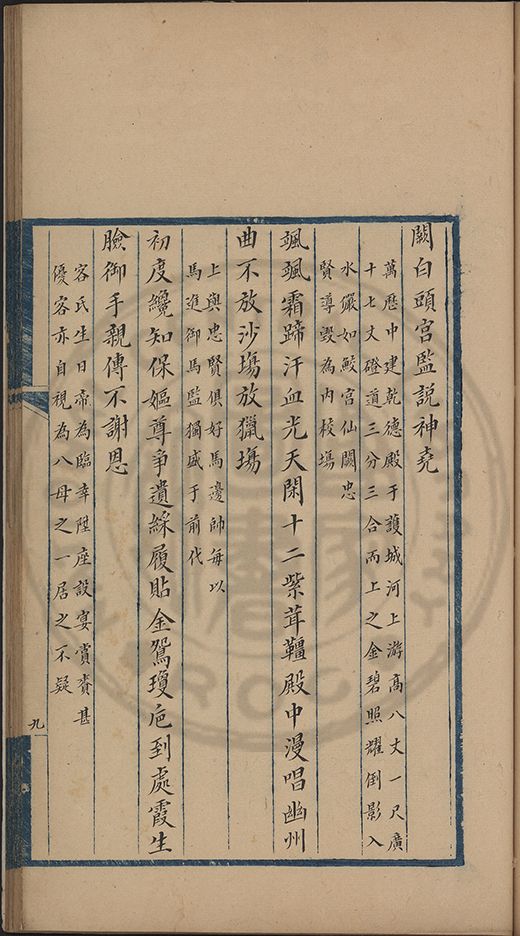 闕白頭宮監說神堯
萬歷中建乾德殿于護城河上游高八丈一尺廣
十七丈磴道三分三合而上之金碧照耀倒影入
水儼如鮫宮仙闕忠
賢導毀為內校場
颯颯霜蹄汗血光天閑十二紫茸韁殿中漫唱幽州
曲不放沙場放獵場
上與忠賢俱好馬邊帥每以
馬進御馬監獨盛于前代
初度纔知保嫗尊爭遺綵履貼金鴛瓊卮到處霞生
臉御手親傳不謝恩
客氏生日帝為臨幸陞座設宴賞賚甚
優客亦自視為八母之一居之不疑
九